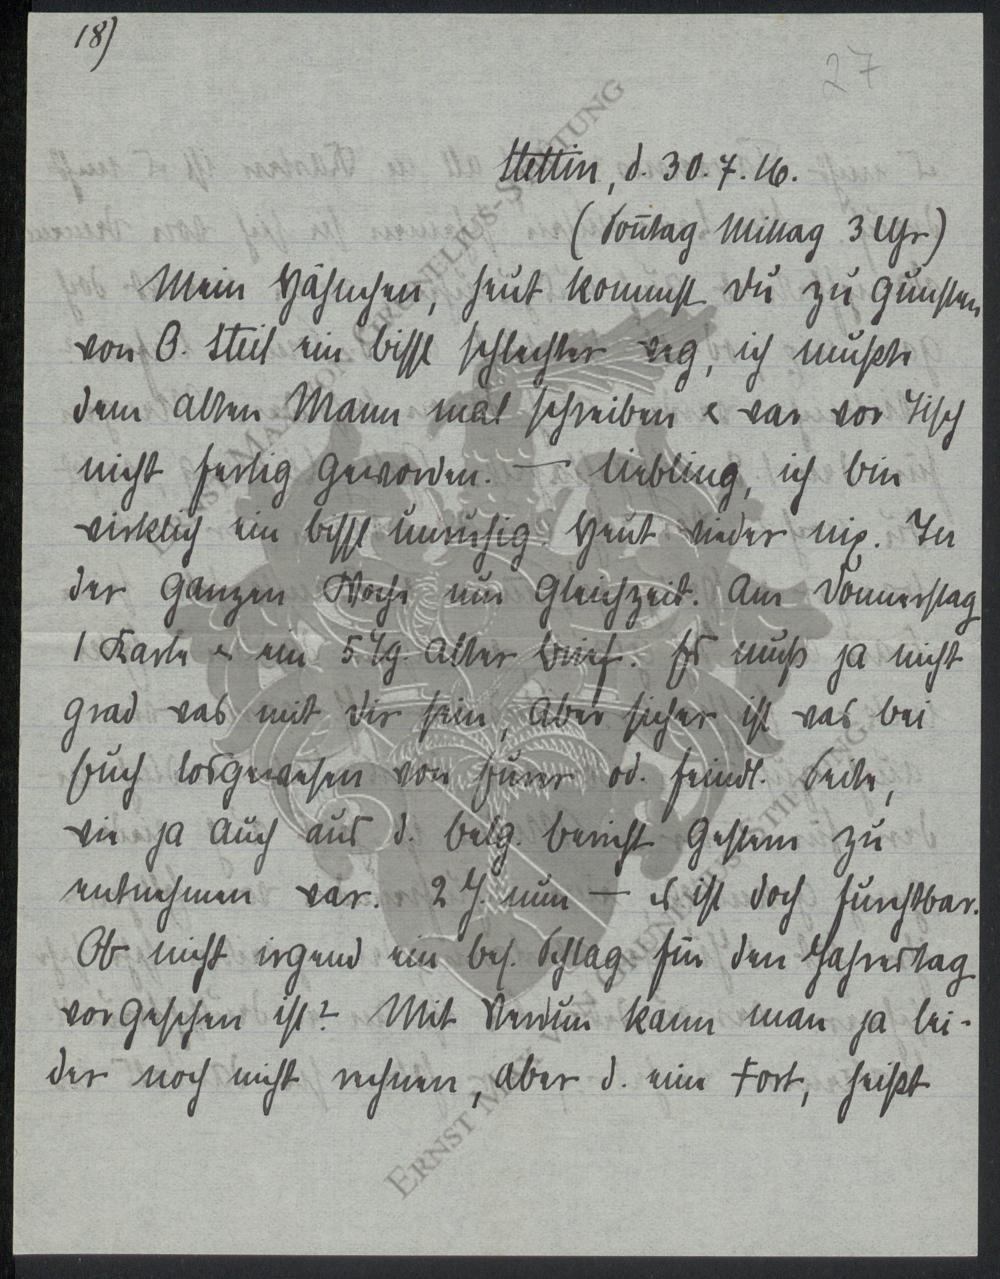 18)
27
Stettin, d. 30.7.16.
(Soñtag Mittag 3 Uhr)
Mein Hähnchen, heut kommst Du zu Gunsten
von O. Steil ein bissl schlechter weg, ich mußte
dem alten Mann mal schreiben & war vor Tisch
nicht fertig geworden. — Liebling, ich bin
wirklich ein bissl unruhig. Heut wieder nix. In
der ganzen Woche nur Gleichzeit. Am Donnerstag
1 Karte & ein 5 Tg. alter Brief. Es muß ja nicht
grad was mit Dir sein, aber sicher ist was bei
Euch losgewesen von Eurer od. feindl. Seite,
wie ja auch aus d. belg. Bericht gestern zu
entnehmen war. 2 J. nun — es ist doch furchtbar.
Ob nicht irgend ein bes. Schlag für den Jahrestag
vorgesehen ist? Mit Verdun kann man ja lei-
der noch nicht rechnen, aber d. eine Fort, heißt
ERNST MAX VON GRENELIUS-STIFTUNG